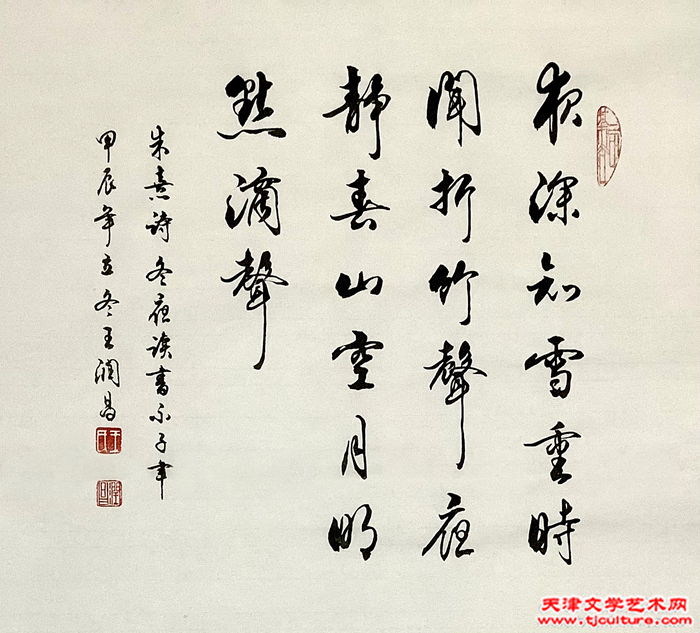 夜深知雪重時
聞折竹聲夜
靜春山空月明
點滴聲
朱熹诗冬夜读書示子聿
甲辰年立冬王润昌
天津文学艺术网
www.tjculture.com